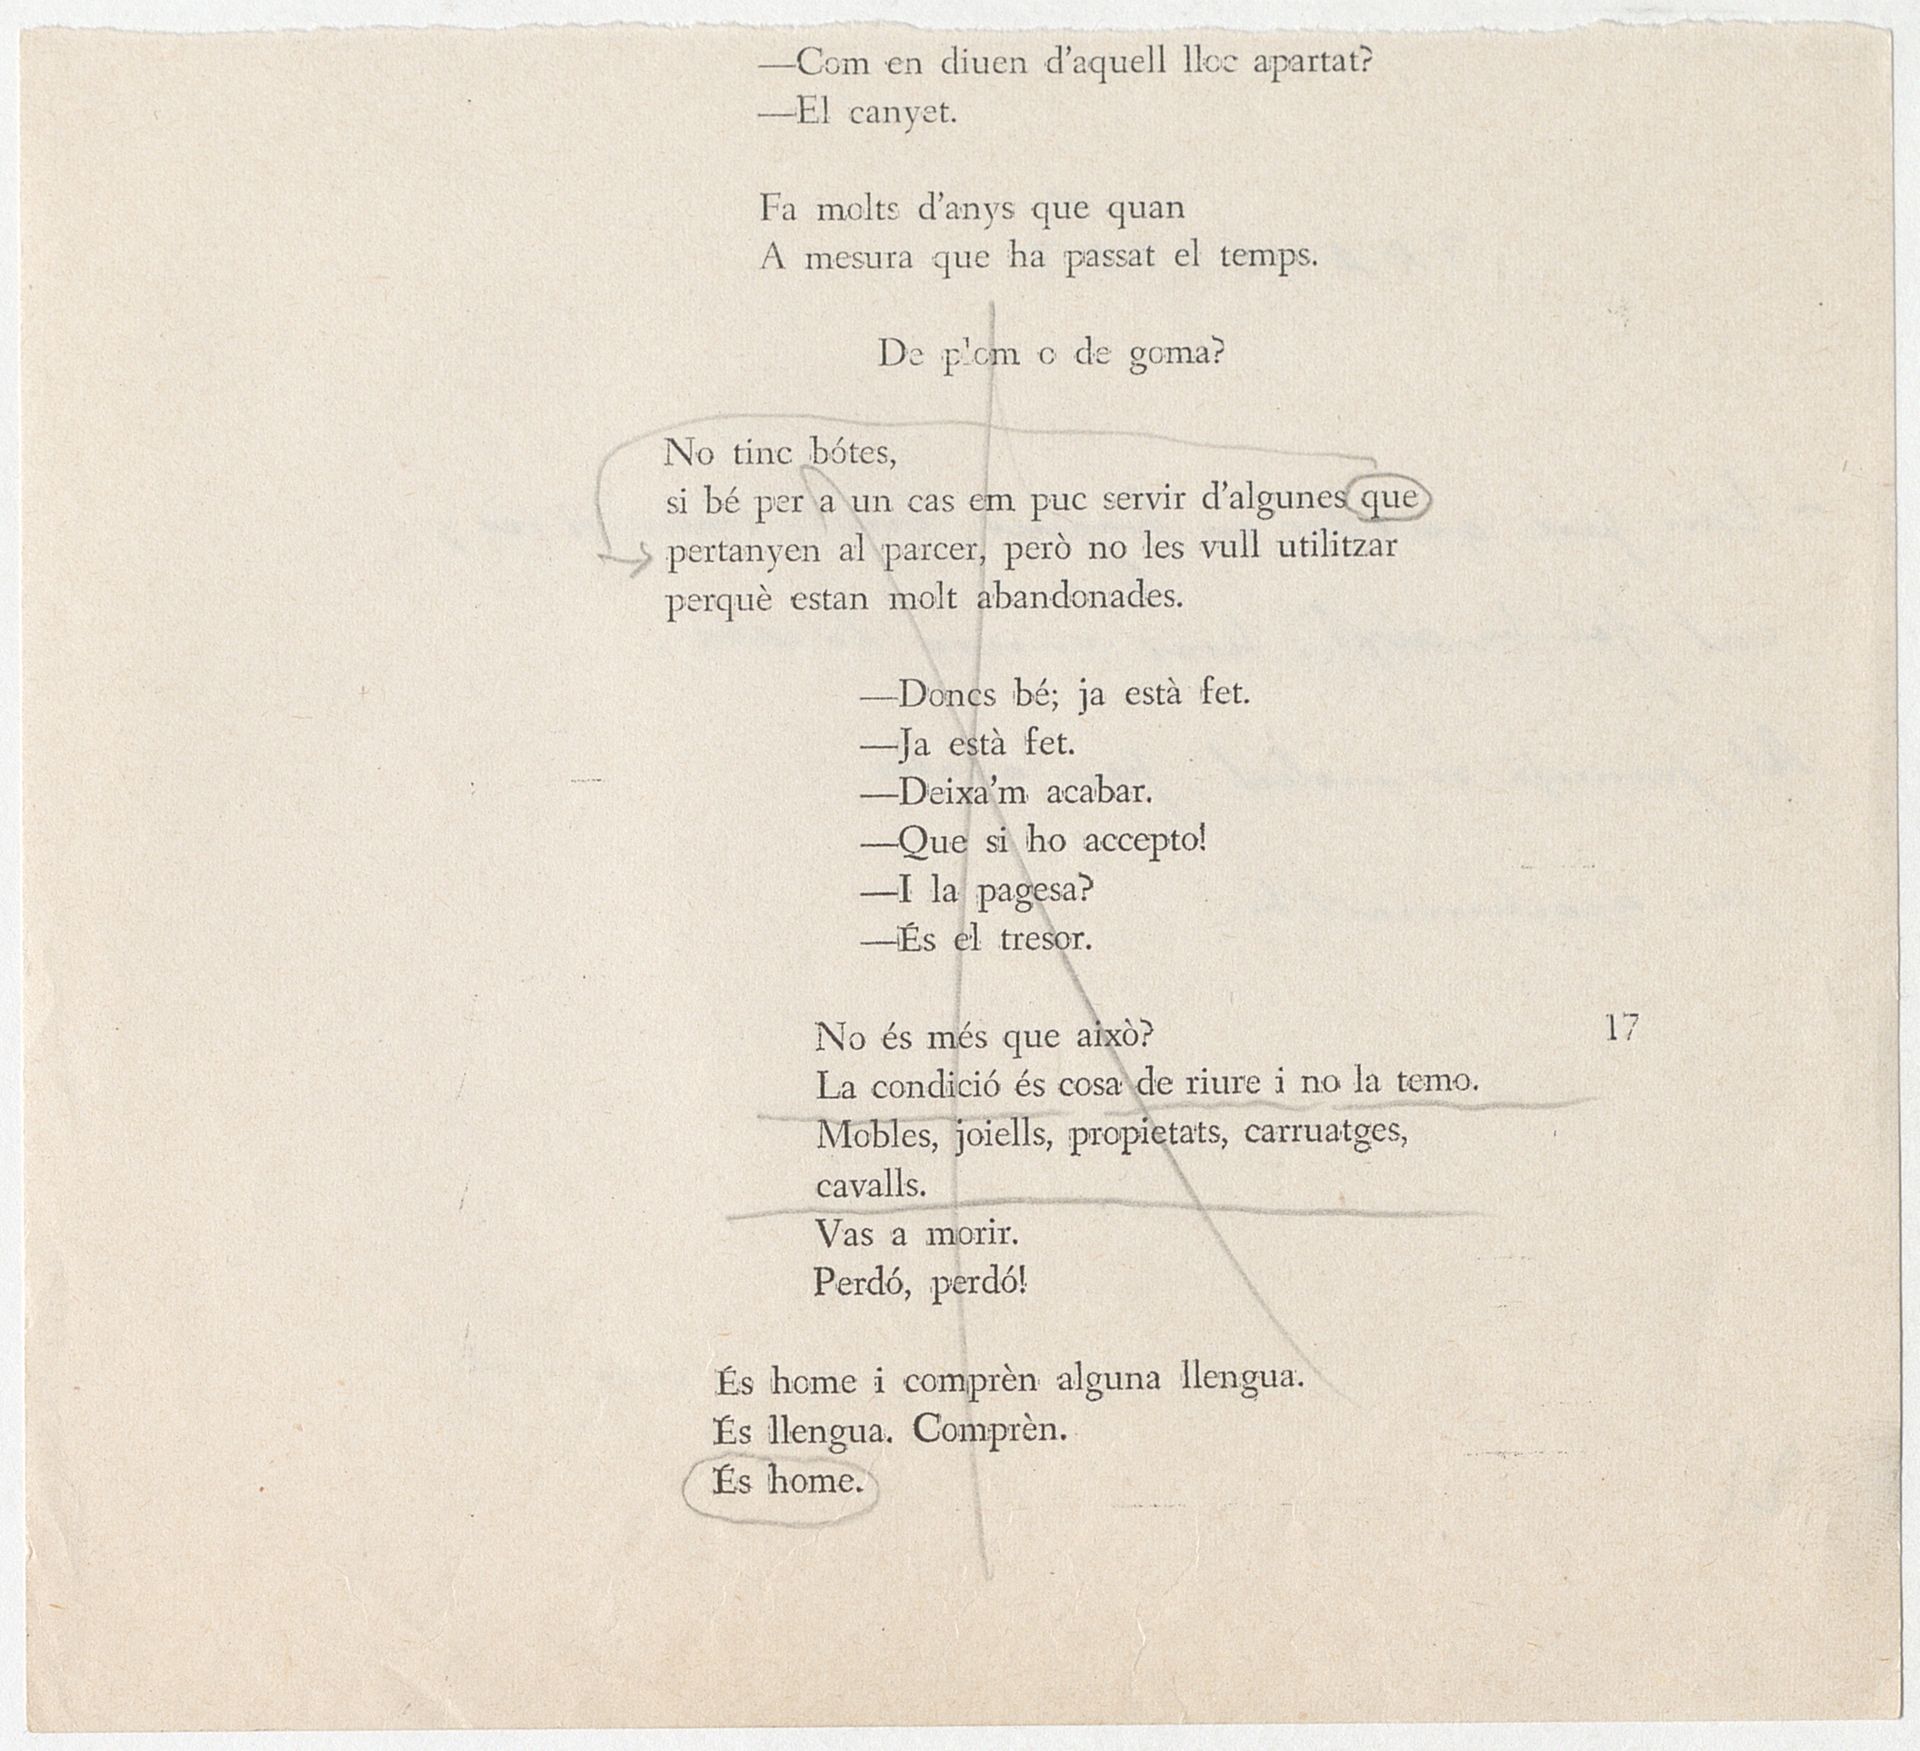 —Com en diuen d'aquell lloc apartat?
—El canyet.
Fa molts d'anys que quan
A mesura que ha passat el temps.
De plom o de goma?
No tinc bótes,
si bé per a un cas em puc servir d'algunes que
pertanyen al parcer, però no les vull utilitzar
perquè estan molt abandonades.
—Doncs bé; ja està fet.
—Ja està fet.
—Deixa'm acabar.
—Que si ho accepto!
—I la pagesa?
—És el tresor.
No és més que això? 17
La condició és cosa de riure i no la temo.
Mobles, joiells, propietats, carruatges,
cavalls.
Vas a morir.
Perdó, perdó!
És home i comprèn alguna llengua.
És llengua. Comprèn.
És home.